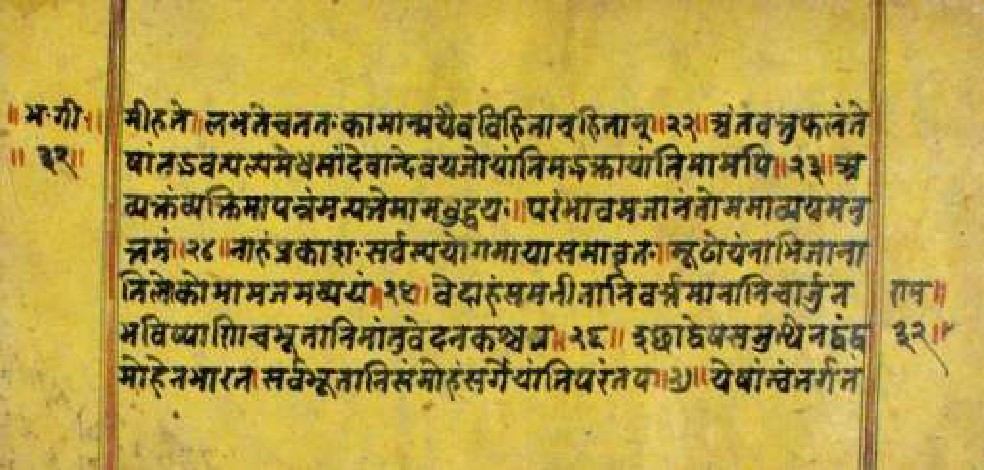 भ.गी.
॥३२॥
मीहते॥लभतेचततःकामान्मयैवविहितान्हितान्॥२२॥अंतवत्तुफलंते
षांतद्भवत्यल्पमेधसांदेवान्देवयजोयांतिमद्भक्तायांतिमामपि॥२३॥अ
व्यक्तंव्यक्तिमापन्नंमन्यन्तेमामबुद्धयः॥परंभावमजानंतोममाव्ययमनु
त्तमं॥२४॥नाहंप्रकाशःसर्वस्ययोगमायासमावृतः॥मूढोयंनाभिजाना
तिलोकोमामजमव्ययं॥२५॥वेदाहंसमतीतानिवर्त्तमानानिचार्जुन
भविष्याणिचभूतानिमांतुवेदनकश्चन॥२६॥इछाद्वेषसमुत्थेनद्वंद्व
मोहेनभारत॥सर्वभूतानिसंमोहंसर्गेयांतिपरंतप॥२७॥येषांत्वंतर्गतं
राम॥
३२॥